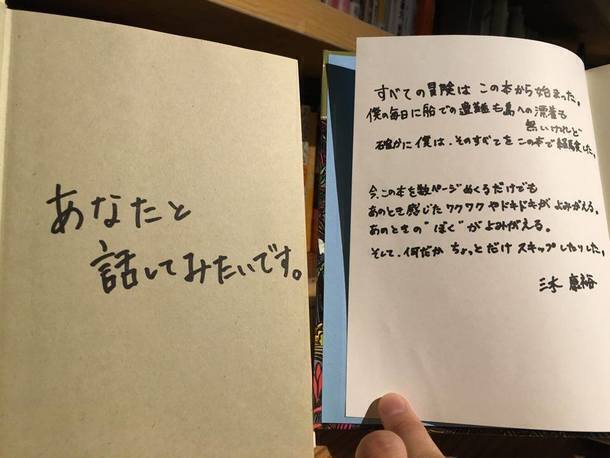 あなたと
話してみたいです。
すべての冒険は この本から始まった。
僕の毎日に船での遭難も島への漂着も
無いけれど
確かに僕は、そのすべてをこの本で経験した。
今、この本を数ページめくるだけでも
あのとき感じたワクワクやドキドキがよみがえる。
あのときの"ぼく"がよみがえる。
そして、何だか ちょっとだけ スキップしたりした。
三木 康裕